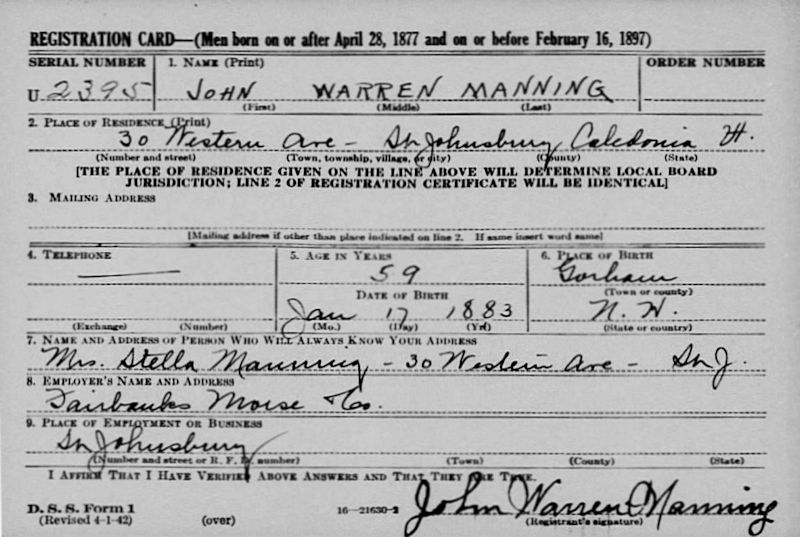 REGISTRATION CARD—(Men born on or after April 28, 1877 and on or before February 16, 1897)
SERIAL NUMBER 1. NAME (Print) ORDER NUMBER
U 2395 JOHN WARREN MANNING
(First) (Middle) (Last)
2. PLACE OF RESIDENCE (Print)
30 Western Ave - St Johnsbury Caledonia Vt.
(Number and street) (Town, township, village, or city) (County) (State)
[THE PLACE OF RESIDENCE GIVEN ON THE LINE ABOVE WILL DETERMINE LOCAL BOARD
JURISDICTION; LINE 2 OF REGISTRATION CERTIFICATE WILL BE IDENTICAL]
3. MAILING ADDRESS
[Mailing address if other than place indicated on line 2. If same insert word same]
4. TELEPHONE 5. AGE IN YEARS 6. PLACE OF BIRTH
59 Gorham
DATE OF BIRTH (Town or county)
Jan 17 1883 N. H.
(Exchange) (Number) (Mo.) (Day) (Yr.) (State or country)
7. NAME AND ADDRESS OF PERSON WHO WILL ALWAYS KNOW YOUR ADDRESS
Mrs. Stella Manning - 30 Western Ave - St J.
8. EMPLOYER'S NAME AND ADDRESS
Fairbanks Morse & Co.
9. PLACE OF EMPLOYMENT OR BUSINESS
St Johnsbury
(Number and street or R. F. D. number) (Town) (County) (State)
I AFFIRM THAT I HAVE VERIFIED ABOVE ANSWERS AND THAT THEY ARE TRUE.
D. S. S. Form 1
(Revised 4-1-42) (over) 16—21630-2 John Warren Manning
(Registrant's signature)